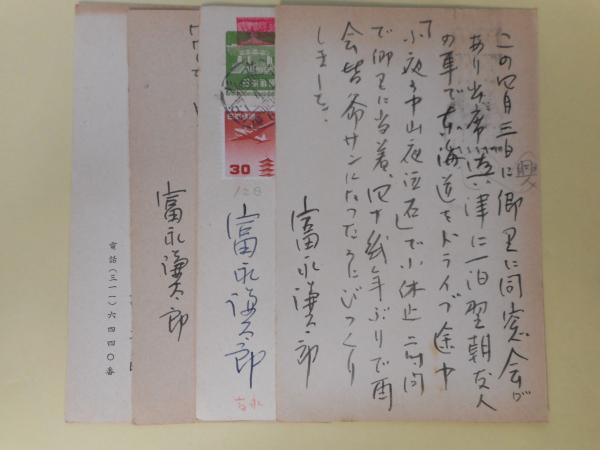 この四月三日に郷里に同窓会が
あり出席 興津に一泊翌朝友人
の車で東海道をドライブ途中
「小夜の中山夜泣石」で小休止 二時間
で郷里に当着 四十数年ぶりで面
会皆爺サンになつたのにびつくり
しました。
富永謙太郎
30
128
富永謙太郎
富永
富永謙太郎
電話(三一一)六四四〇番